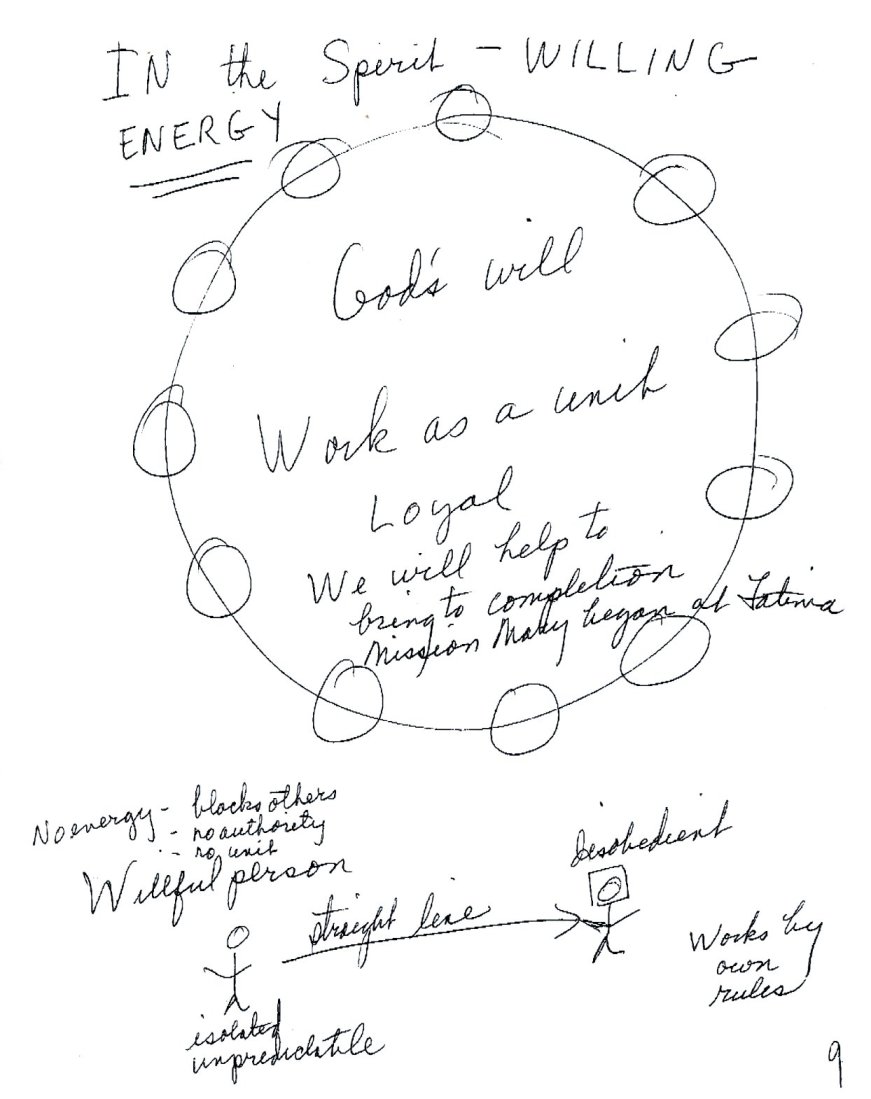 IN the Spirit - WILLING
ENERGY
God's will
Work as a unit
Loyal
We will help to
bring to completion
Mission Mary began at Fatima
No energy - blocks others
- no authority
- no unit
Willful person
straight line
disobedient
Works by
own
rules
isolated
unpredictable
9